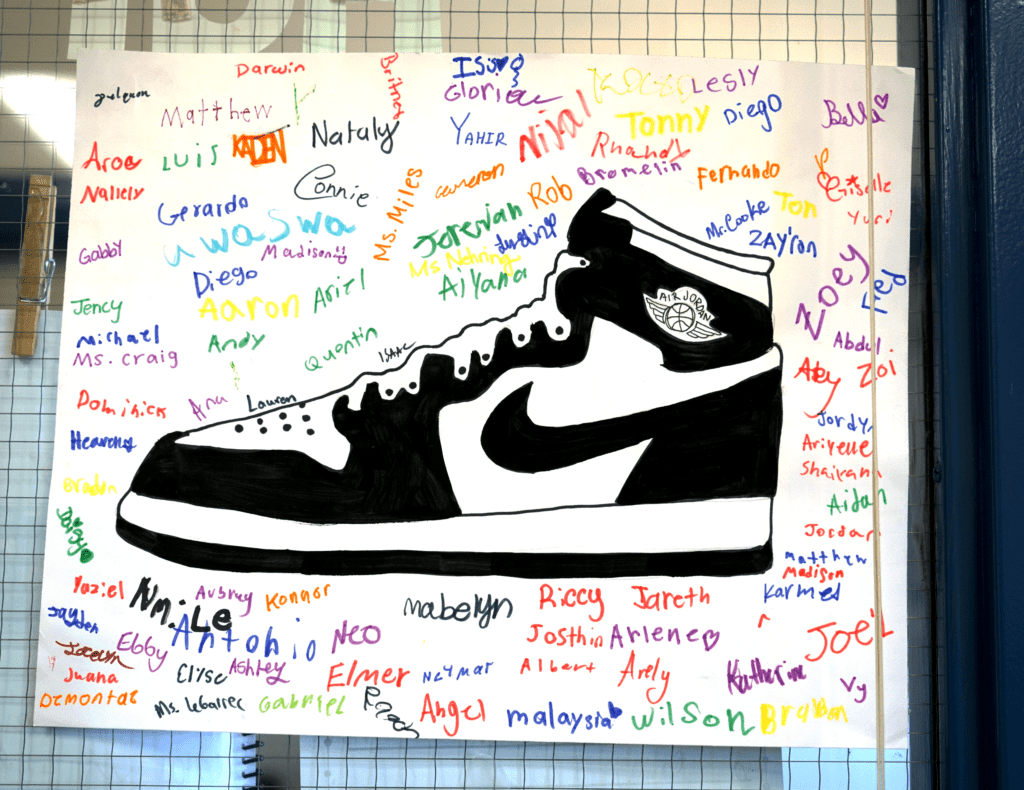 Darwin
Brithey
ISIS
Gloria
Lesly
Matthew
KADEN
Nataly
YAHIR
Nijal
Tonny
Diego
Bella
Aroe
LUIS
Rhandy
Nallely
Connie
Ms. Miles
cameron
Rob
Bromelin
Fernando
Giselle
Gerardo
uwaswa
Jeremiah
Mr. Cooke
Ton
Yuri
Gabby
Madison
Ms Nehring
ZAY'ron
Diego
Aiyana
Zoey
Jency
Aaron
Ariel
AIR JORDAN
Michael
Andy
Quentin
ISAAC
Abdul
Ms. Craig
Zoi
Dominick
Ana
Lauren
Jordy
Heaven
Ariyelle
Braden
Aidan
Jordan
Matthew
Madison
Yaziel
Aubrey
Konnor
mabelyn
Riccy
Jareth
Karmed
Jayden
Nmile
Antonio
Neo
Josthin
Arlene
Joel
Ebby
Jocelyn
Ashley
Juana
Elyse
Elmer
Neymar
Albert
Arely
Katherine
Vy
Demontae
Gabriel
Angel
malaysia
Wilson
Brayan